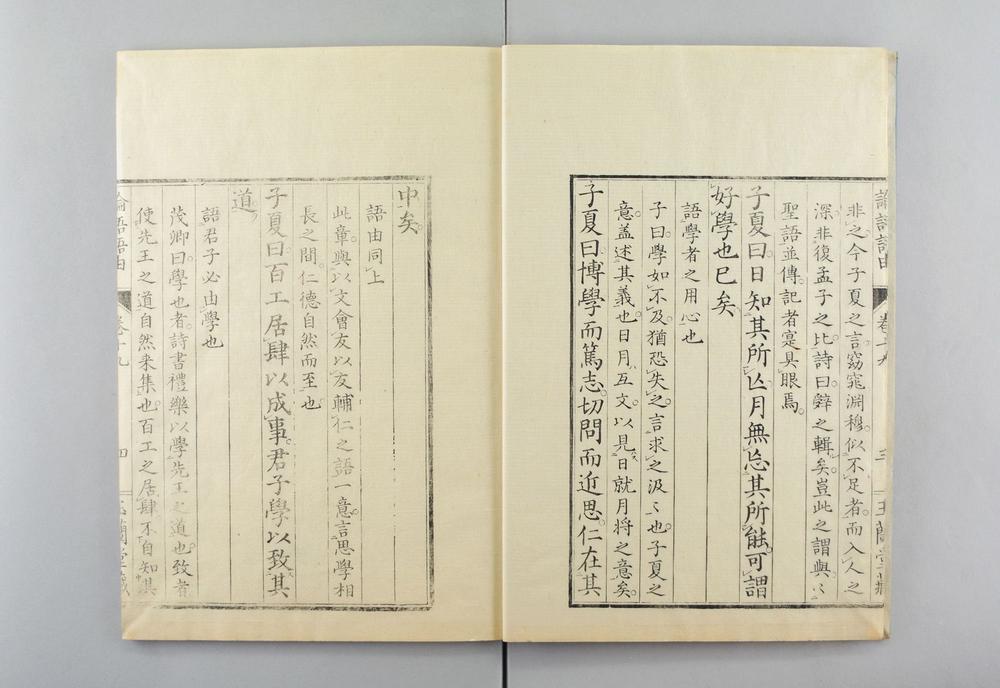 論語語由 卷十九 三 玉蘭堂藏
非之今子夏之言窈窕淵穆似不足者而入人之
深非復孟子之比詩曰辭之輯矣豈此之謂與〻
聖語並傳記者寔具眼焉
子夏曰日知其所亾月無忘其所能可謂
好學也已矣
語學者之用心也
子曰學如不及猶恐失之言求之汲〻也子夏之
意蓋述其義也日月互文以見日就月將之意矣
子夏曰博學而篤志切問而近思仁在其
中矣
語由同上
此章與以文會友以友輔仁之語一意言思學相
長之間仁德自然而至也
子夏曰百工居肆以成事君子學以致其
道
語君子必由學也
茂卿曰學也者詩書禮樂以學先王之道也致者
使先王之道自然来集也百工之居肆不自知其
論語語由 卷十九 四 玉蘭堂藏